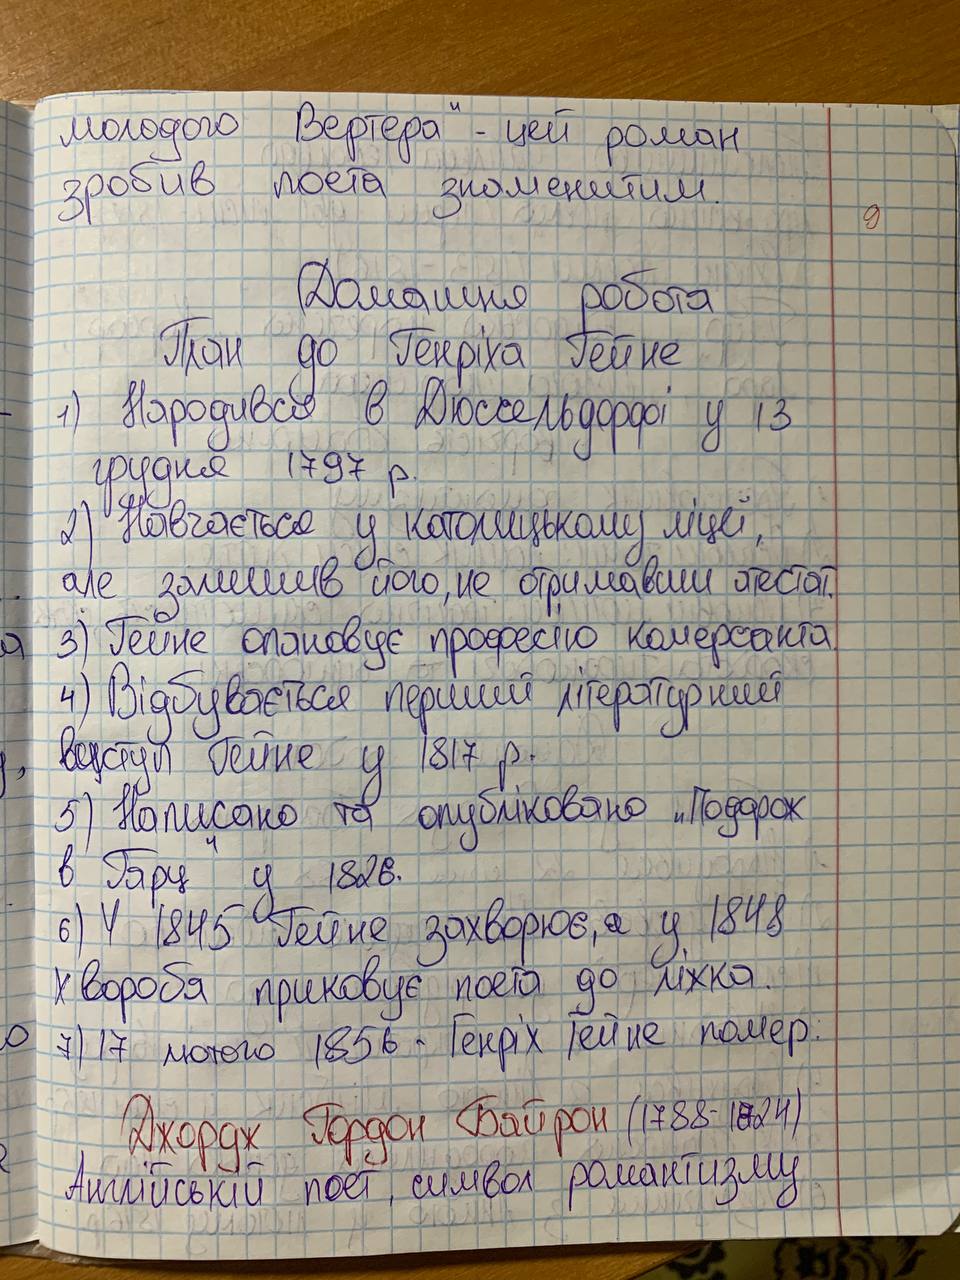 молодого Вертера" - цей роман
зробив поета знаменитим.
9
Домашня робота
План до Генріха Гейне
1) Народився в Дюссельдорфі у 13
грудня 1797 р.
2) Навчається у католицькому ліцеї,
але залишив його, не отримавши атестат.
3) Гейне опановує професію комерсанта
4) Відбувається перший літературний
виступ Гейне у 1817 р.
5) Написано та опубліковано „Подорож
в Гарц" у 1826.
6) У 1845 Гейне захворює, а у 1848
хвороба приковує поета до ліжка.
7) 17 лютого 1856 - Генріх Гейне помер.
Джордж Гордон Байрон (1788-1824)
Англійській поет, символ романтизму